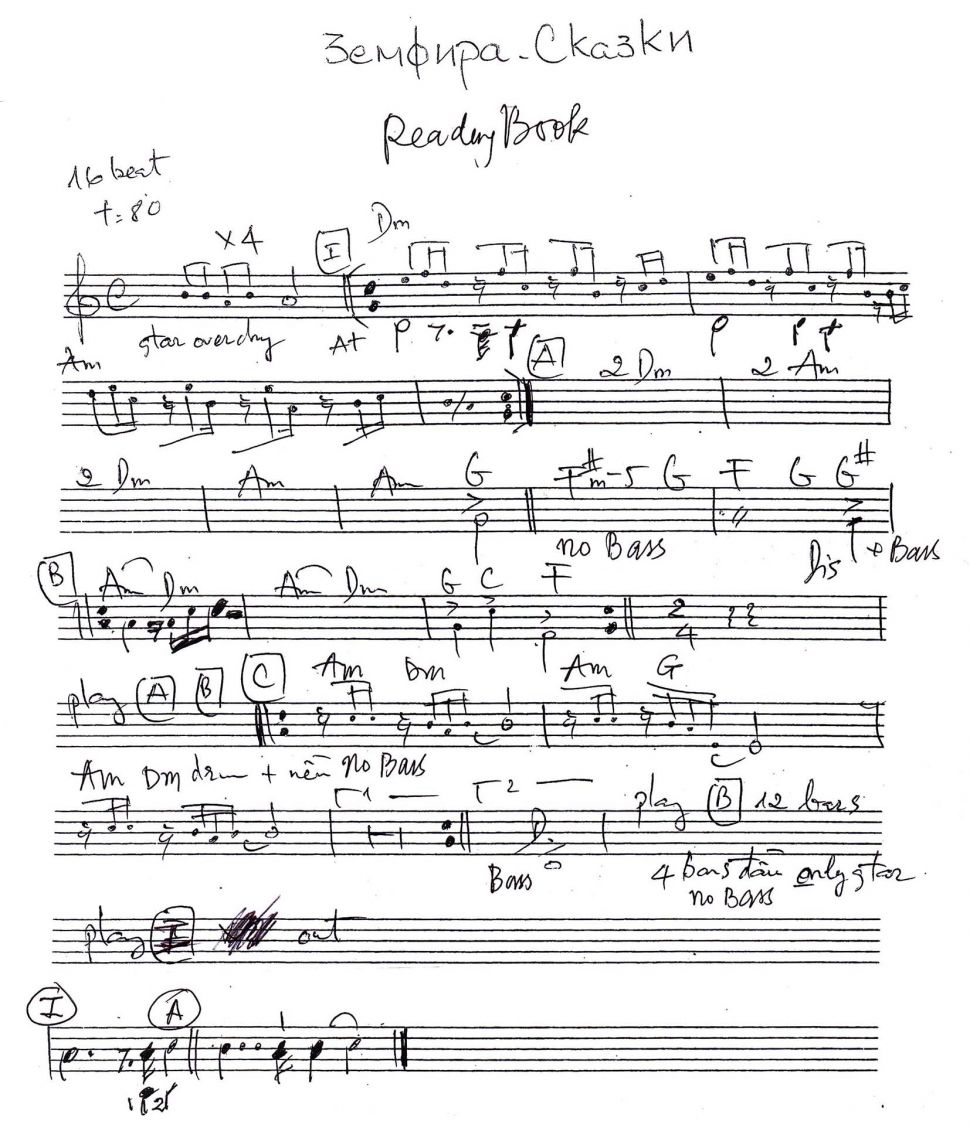 Земфира-Сказки
Ready Book
16 beat
t=80
×4 I Dm
C
gtar overdry A+
Am A 2 Dm 2 Am
2 Dm Am Am G F#m-5 G F G G#
no Bass + Bass
B Am Dm Am Dm G C F
2
4
play A B C Am Dm Am G
Am Dm + nền no Bass
1 2 play B 12 bars
Bass 4 bars đầu only gtar
no Bass
play I out
I A